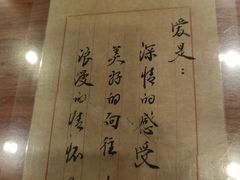 爱是：
深情的感受
美好的向往
浪爱的情怀